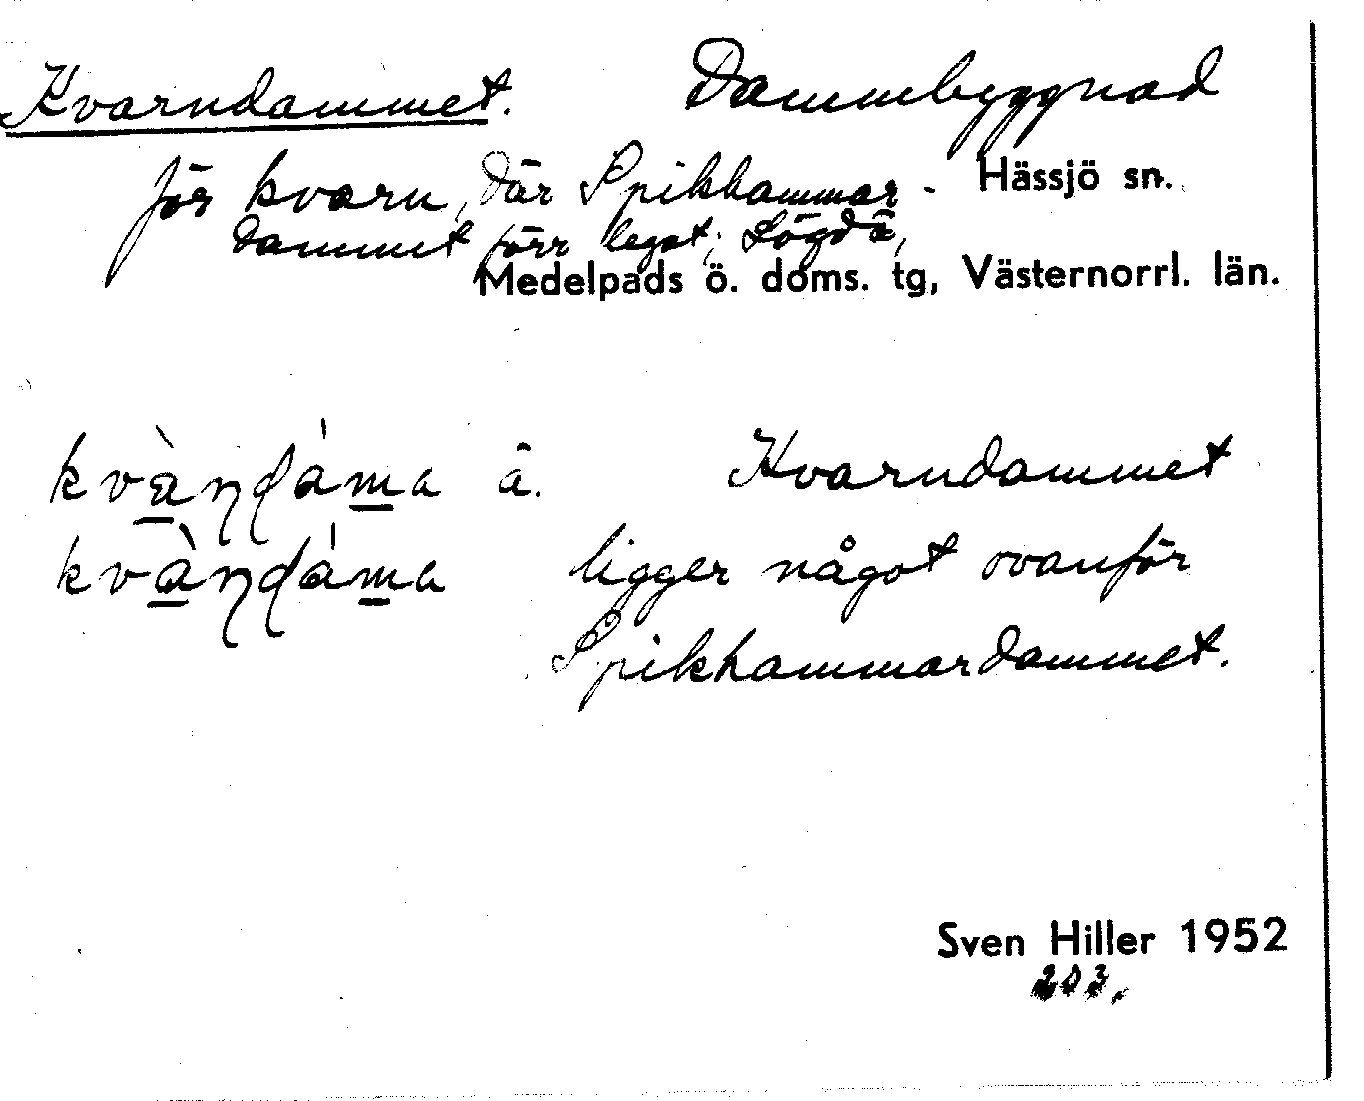 Kvarndammet. Dammbyggnad
för kvarn, där Spikhammar- Hässjö sn.
dammet förr legat; Lögdö,
Medelpads ö. doms. tg, Västernorrl. län.
kvàɳɖáma å. Kvarndammet
kvàɳɖáma ligger något ovanför
Spikhammardammet.
Sven Hiller 1952
203.